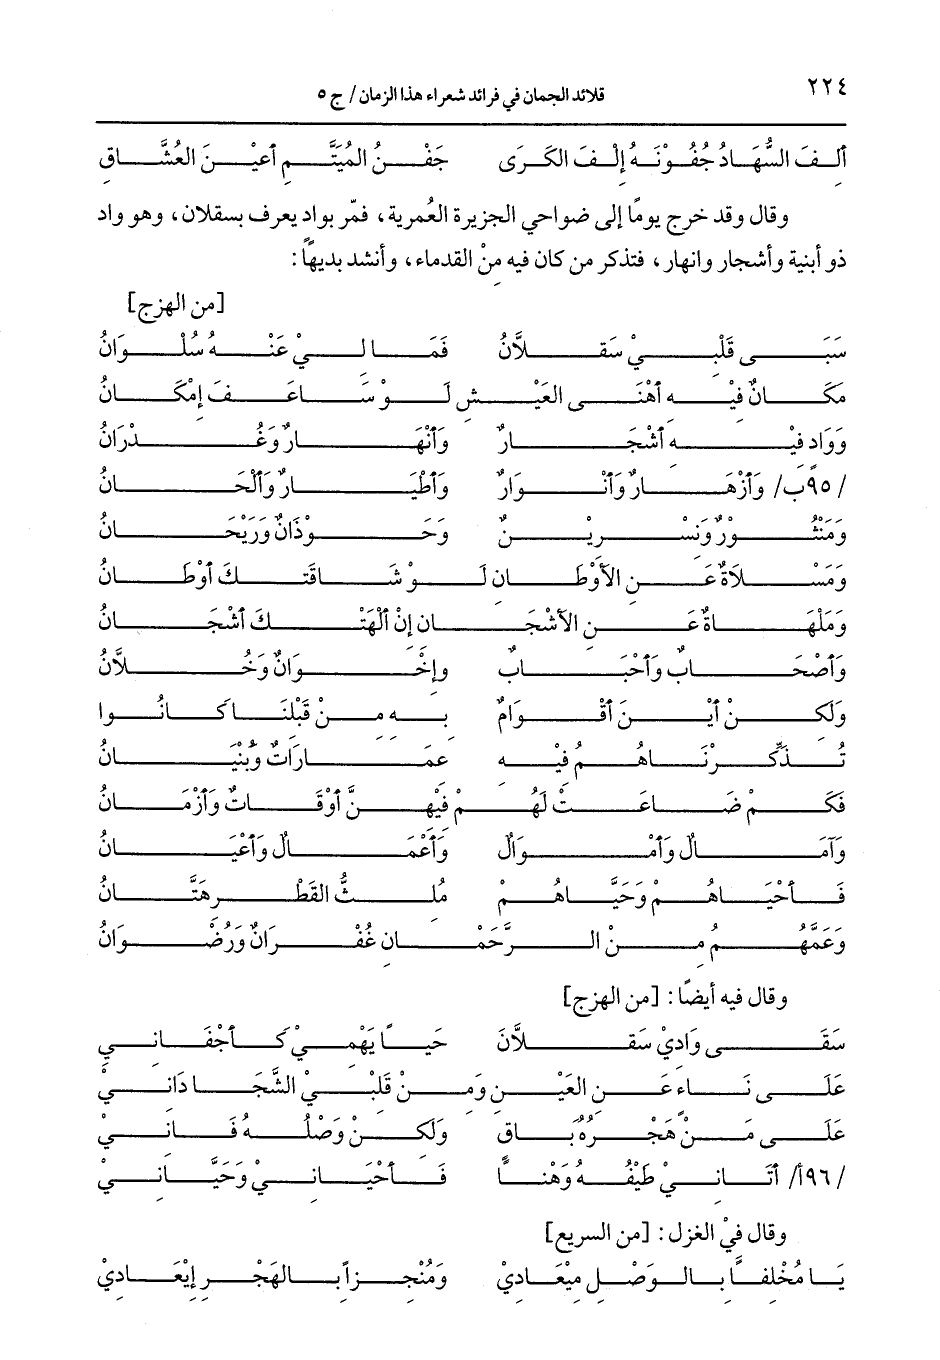 ٢٢٤
قلائد الجمان في فرائد شعراء هذا الزمان/ ج ٥
أَلِفَ السُّهَادُ جُفُوْنَهُ إِلْفَ الكَرَى جَفْنُ المُتَيَّمِ أَعْيُنَ العُشَّاقِ
وقال وقد خرج يومًا إلى ضواحي الجزيرة العُمرية، فمّر بوادٍ يعرف بسقلان، وهو واد
ذو أبنية وأشجار وانهار، فتذكر من كان فيه مِنْ القدماء، وأنشد بديهًا:
[من الهزج]
سَبَى قَلْبِيْ سَقلَّانُ فَمَا لِيْ عَنْهُ سُلْوَانُ
مَكَانٌ فِيْهِ أَهْنَى العَيْشِ لَوْ سَاعَفَ إِمْكَانُ
وَوَادٍ فِيْهِ أَشْجَارٌ وَأَنْهَارٌ وَغُدْرَانُ
/٩٥ب/ وَأَزْهَارٌ وَأَنْوَارٌ وَأَطْيَارٌ وَأَلْحَانُ
وَمَنْثُوْرٌ وَنِسْرِيْنٌ وَحَوْذَانٌ وَرَيْحَانُ
وَمَسْلَاةٌ عَنِ الأَوْطَانِ لَوْ شَاقَتكَ أَوْطَانُ
وَمَلْهَاةٌ عَنِ الأَشْجَانِ إِنْ أَلْهَتْكَ أَشْجَانُ
وَأَصْحَابٌ وَأَحْبَابٌ وإِخْوَانٌ وَخُلَّانُ
وَلَكِنْ أَيْنَ أَقْوَامٌ بِهِ مِنْ قَبْلنَا كَانُوا
تُذَكِّرْنَاهُمُ فِيْهِ عِمَارَاتٌ وَبُنْيَانُ
فَكَمْ ضَاعَتْ لَهُمْ فِيْهِنَّ أَوْقَاتٌ وَأَزْمَانُ
وَآمَالٌ وَأَمْوَالٌ وَأَعْمَالٌ وَأَعْيَانُ
فَأَحْيَاهُمْ وَحَيَّاهُمْ مُلِثُّ القَطْرِ هَتَّانُ
وَعَمَّهُمُ مِنْ الرَّحَمْنِ غُفْرَانٌ وَرُضْوَانُ
وقال فيه أيضًا: [من الهزج]
سَقَى وَادِيْ سَقلَّانَ حَيًا يَهْمِيْ كَأَجْفَانِي
عَلَى نَاءٍ عَنِ العَيْنِ وَمِنْ قَلْبِيْ الشَّجَا دَانِيْ
عَلَى مَنْ هَجْرُهُ بَاقٍ وَلَكِنْ وَصْلُهُ فَانِيْ
/٩٦أ/ أَتَانِيْ طَيْفُهُ وَهْنًا فَأَحْيَانِيْ وَحَيَّانِيْ
وقال فيْ الغزل: [من السريع]
يَا مُخْلِفًا بِالوَصْلِ مِيْعَادِيْ وَمُنْجِزاً بِالهَجْرِ إِيْعَادِيْ